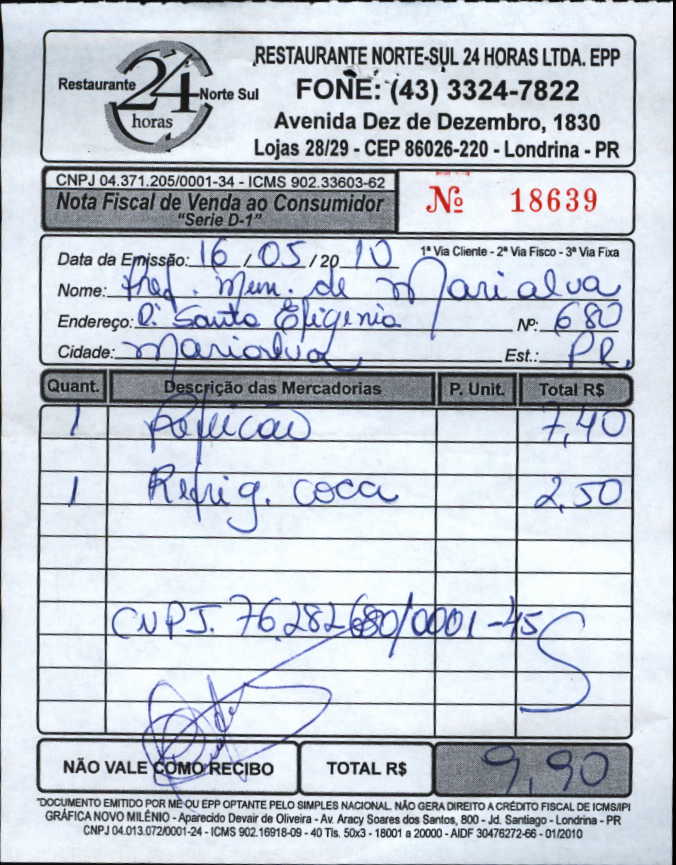 Restaurante 24 horas Norte Sul
RESTAURANTE NORTE-SUL 24 HORAS LTDA. EPP
FONE: (43) 3324-7822
Avenida Dez de Dezembro, 1830
Lojas 28/29 - CEP 86026-220 - Londrina - PR
CNPJ 04.371.205/0001-34 - ICMS 902.33603-62
Nota Fiscal de Venda ao Consumidor
"Serie D-1"
Nº 18639
Data da Emissão: 16 / 05 / 20 10 1ª Via Cliente - 2ª Via Fisco - 3ª Via Fixa
Nome: Pref. Mun. de Marialva
Endereço: R. Santa Efigenia Nº: 680
Cidade: Marialva Est.: PR.
Quant. Descrição das Mercadorias P. Unit. Total R$
1 Refeicão 7,40
1 Refrig. coca 2,50
CNPJ. 76.282680/0001-45
NÃO VALE COMO RECIBO TOTAL R$ 9,90
"DOCUMENTO EMITIDO POR ME OU EPP OPTANTE PELO SIMPLES NACIONAL. NÃO GERA DIREITO A CRÉDITO FISCAL DE ICMS/IPI
GRÁFICA NOVO MILÊNIO - Aparecido Devair de Oliveira - Av. Aracy Soares dos Santos, 800 - Jd. Santiago - Londrina - PR
CNPJ 04.013.072/0001-24 - ICMS 902.16918-09 - 40 Tls. 50x3 - 18001 a 20000 - AIDF 30476272-66 - 01/2010